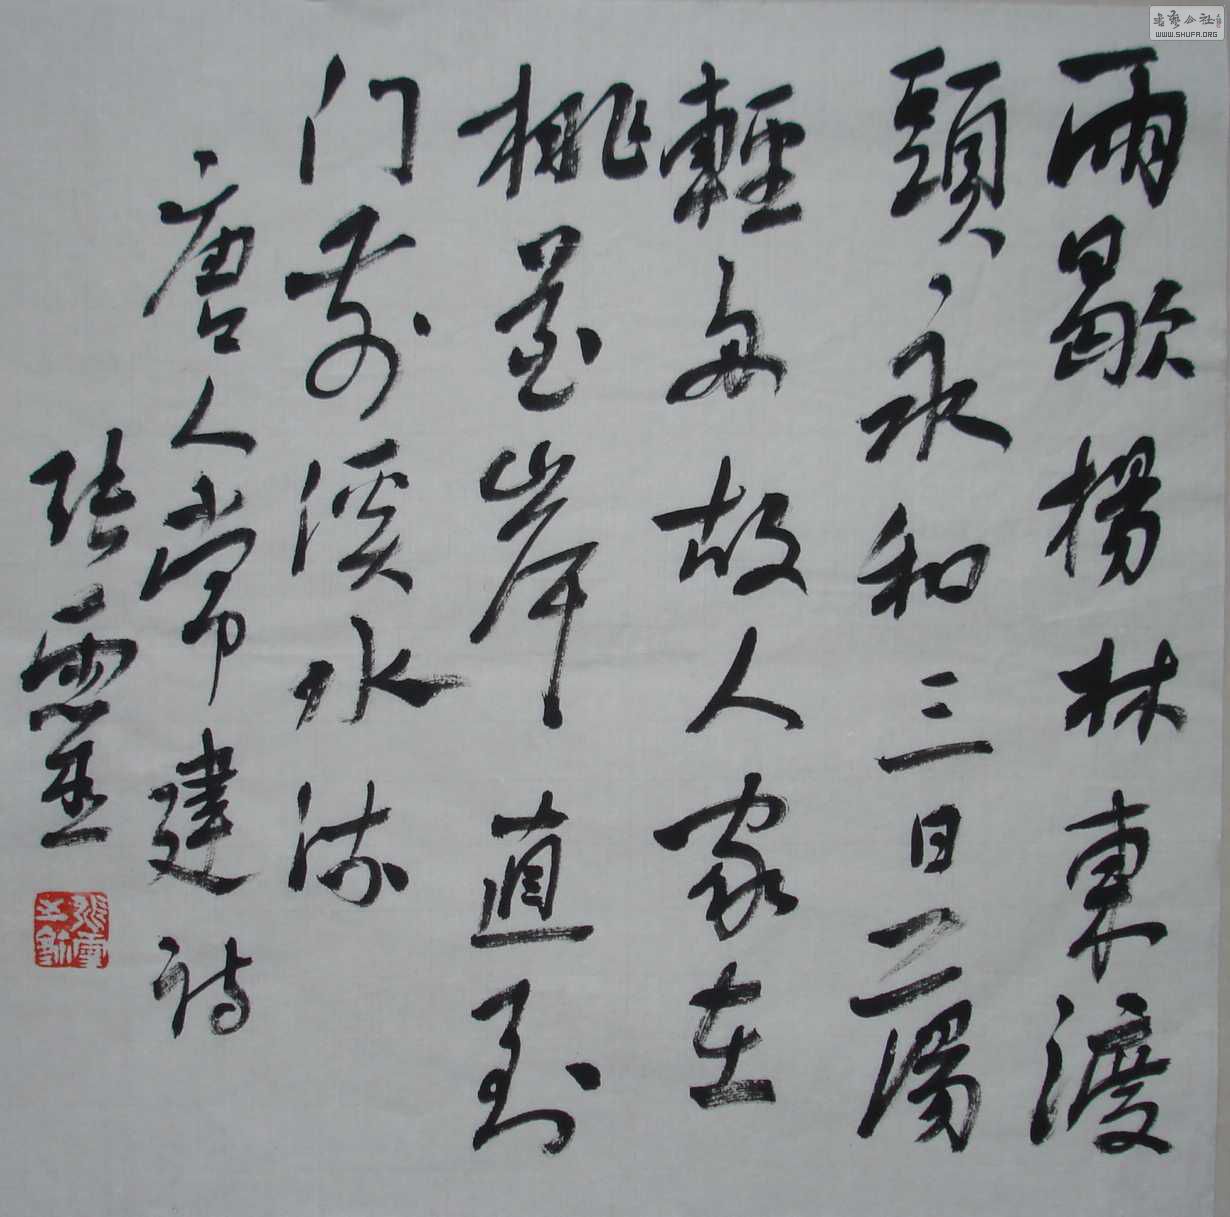 书艺公社
WWW.SHUFA.ORG
雨歇楊林東渡
頭永和三日蕩
輕舟故人家在
桃花岸直到
门前溪水流
唐人常建诗
张靈